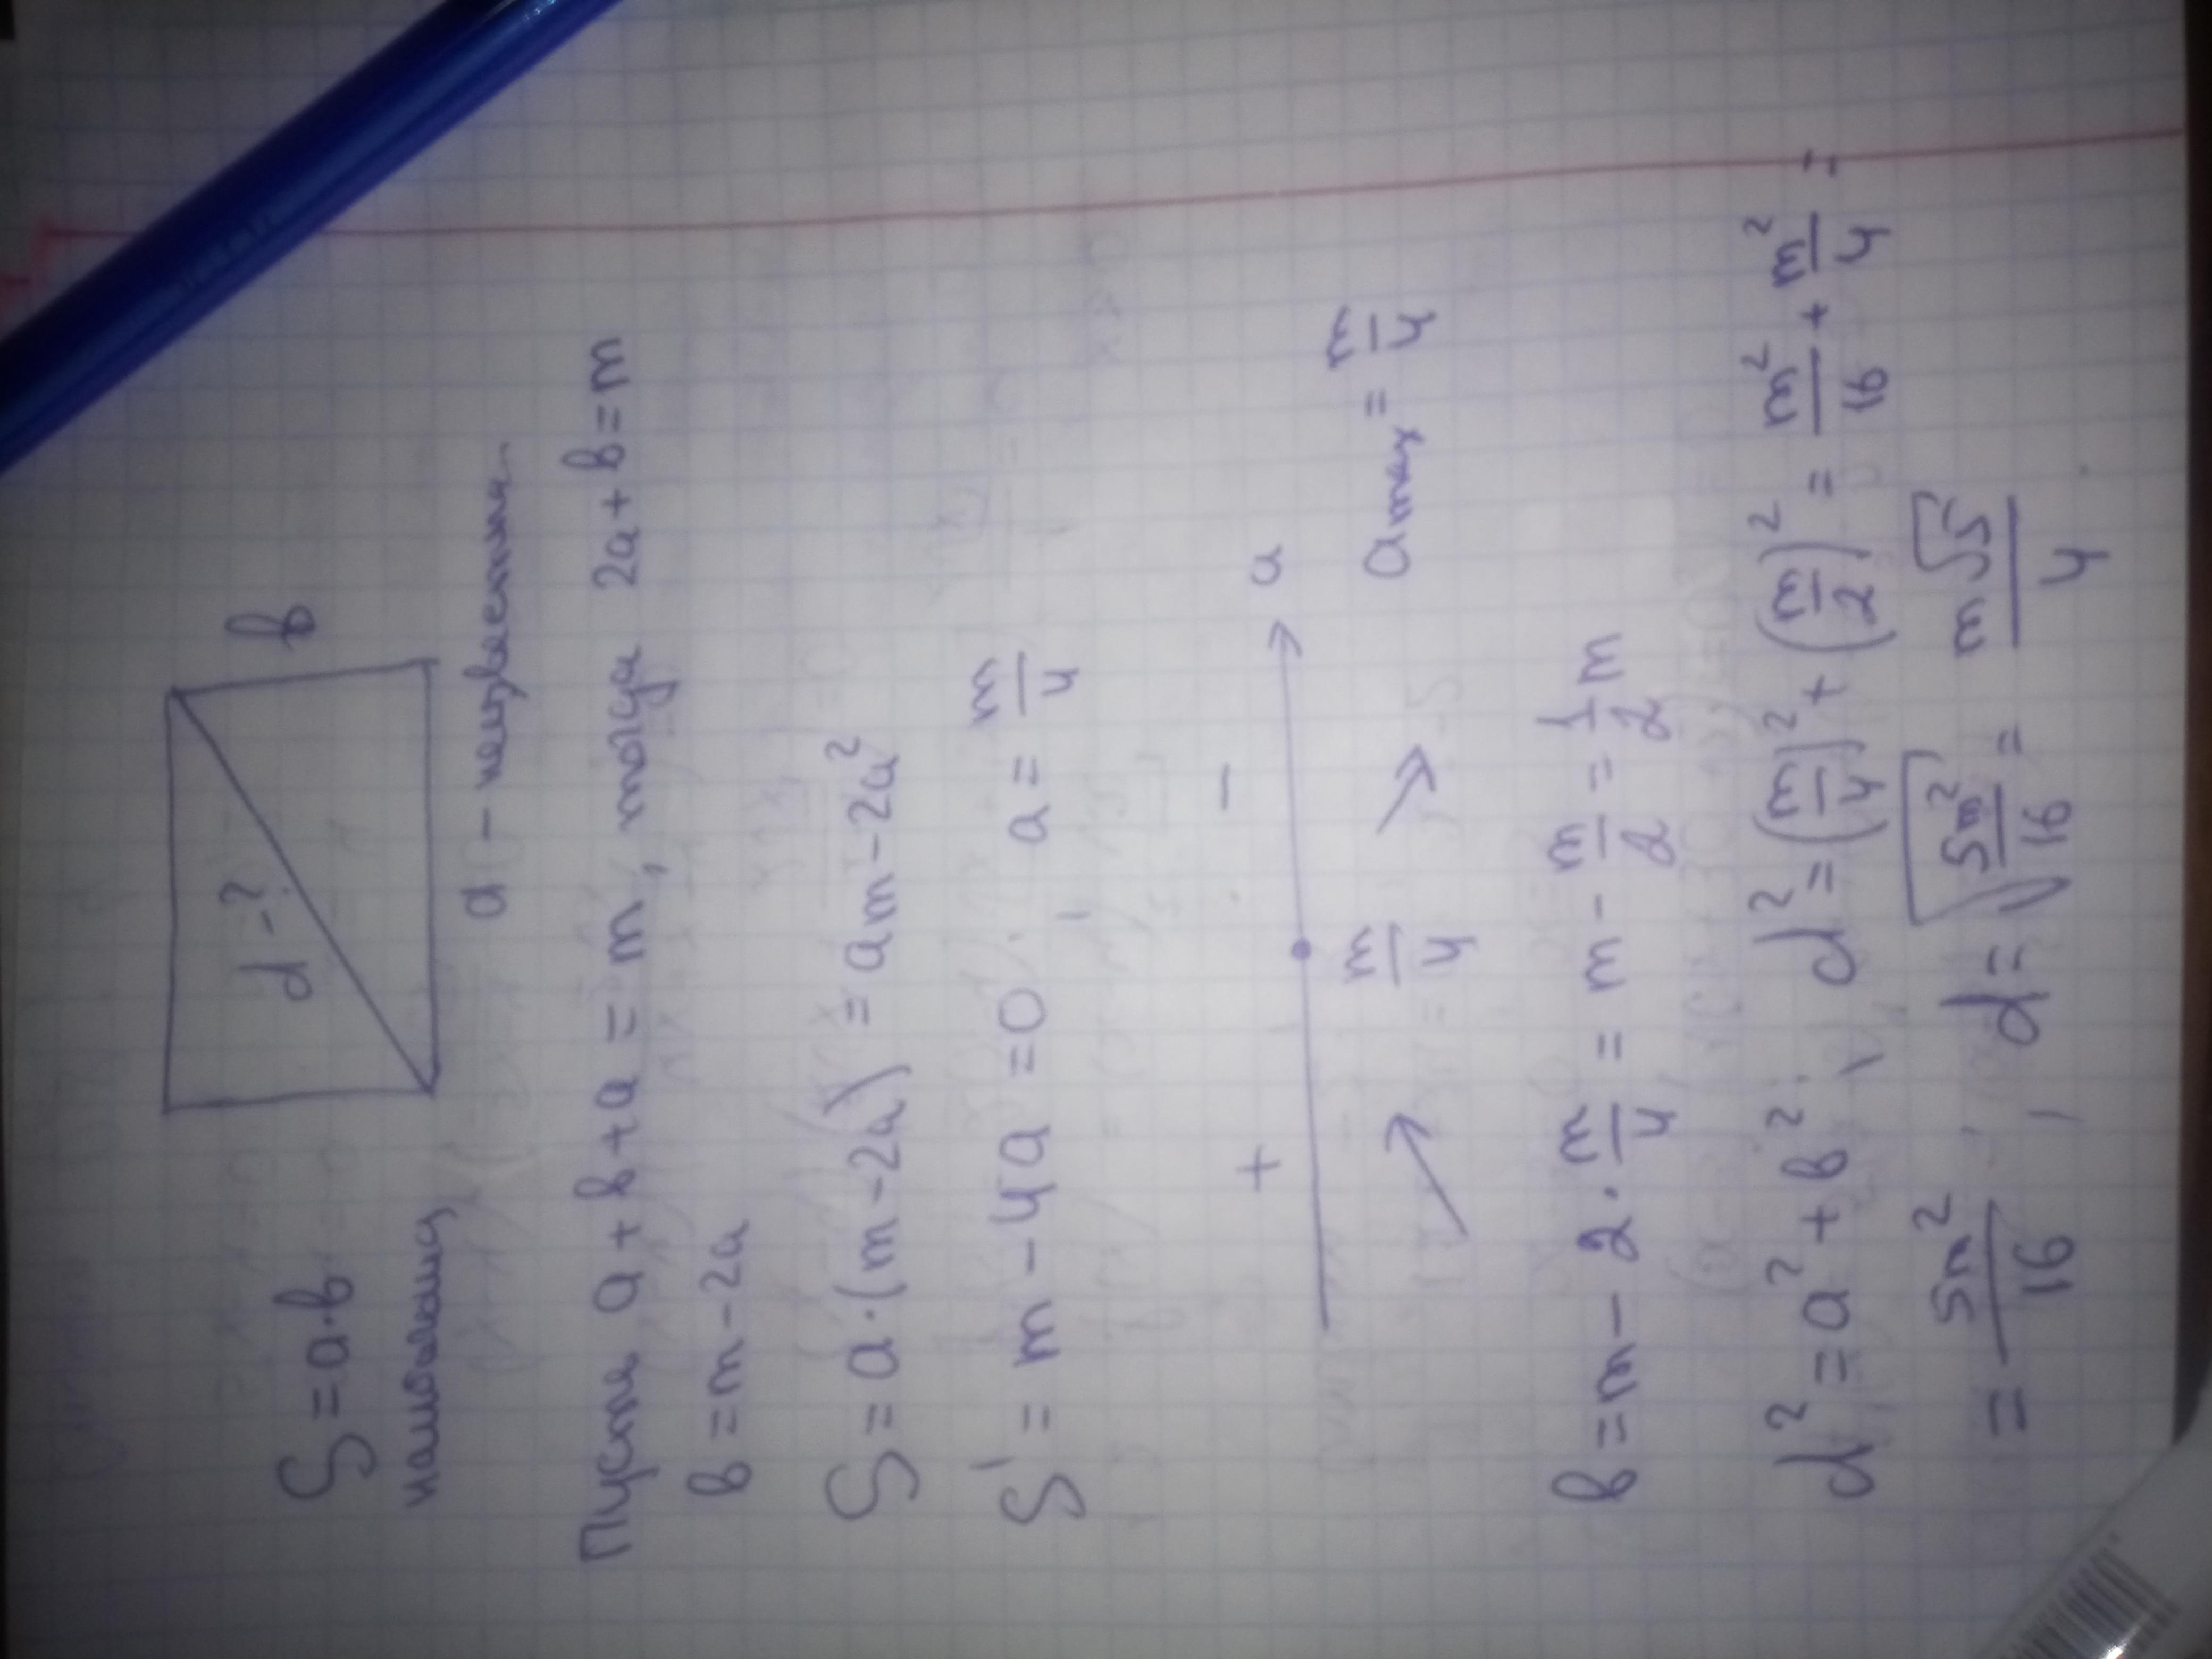 S = a·b
d - ?
b
площадь
a - неизвестна.
Пусть a + b + a = m, тогда 2a + b = m
b = m - 2a
S = a·(m - 2a) = am - 2a²
S' = m - 4a = 0 a = m/4
+ - a
m/4 a max = m/4
b = m - 2·m/4 = m - m/2 = 1/2 m
d² = a² + b²; d² = (m/4)² + (m/2)² = m²/16 + m²/4 =
= 5m²/16, d = √(5m²/16) = m√5/4.